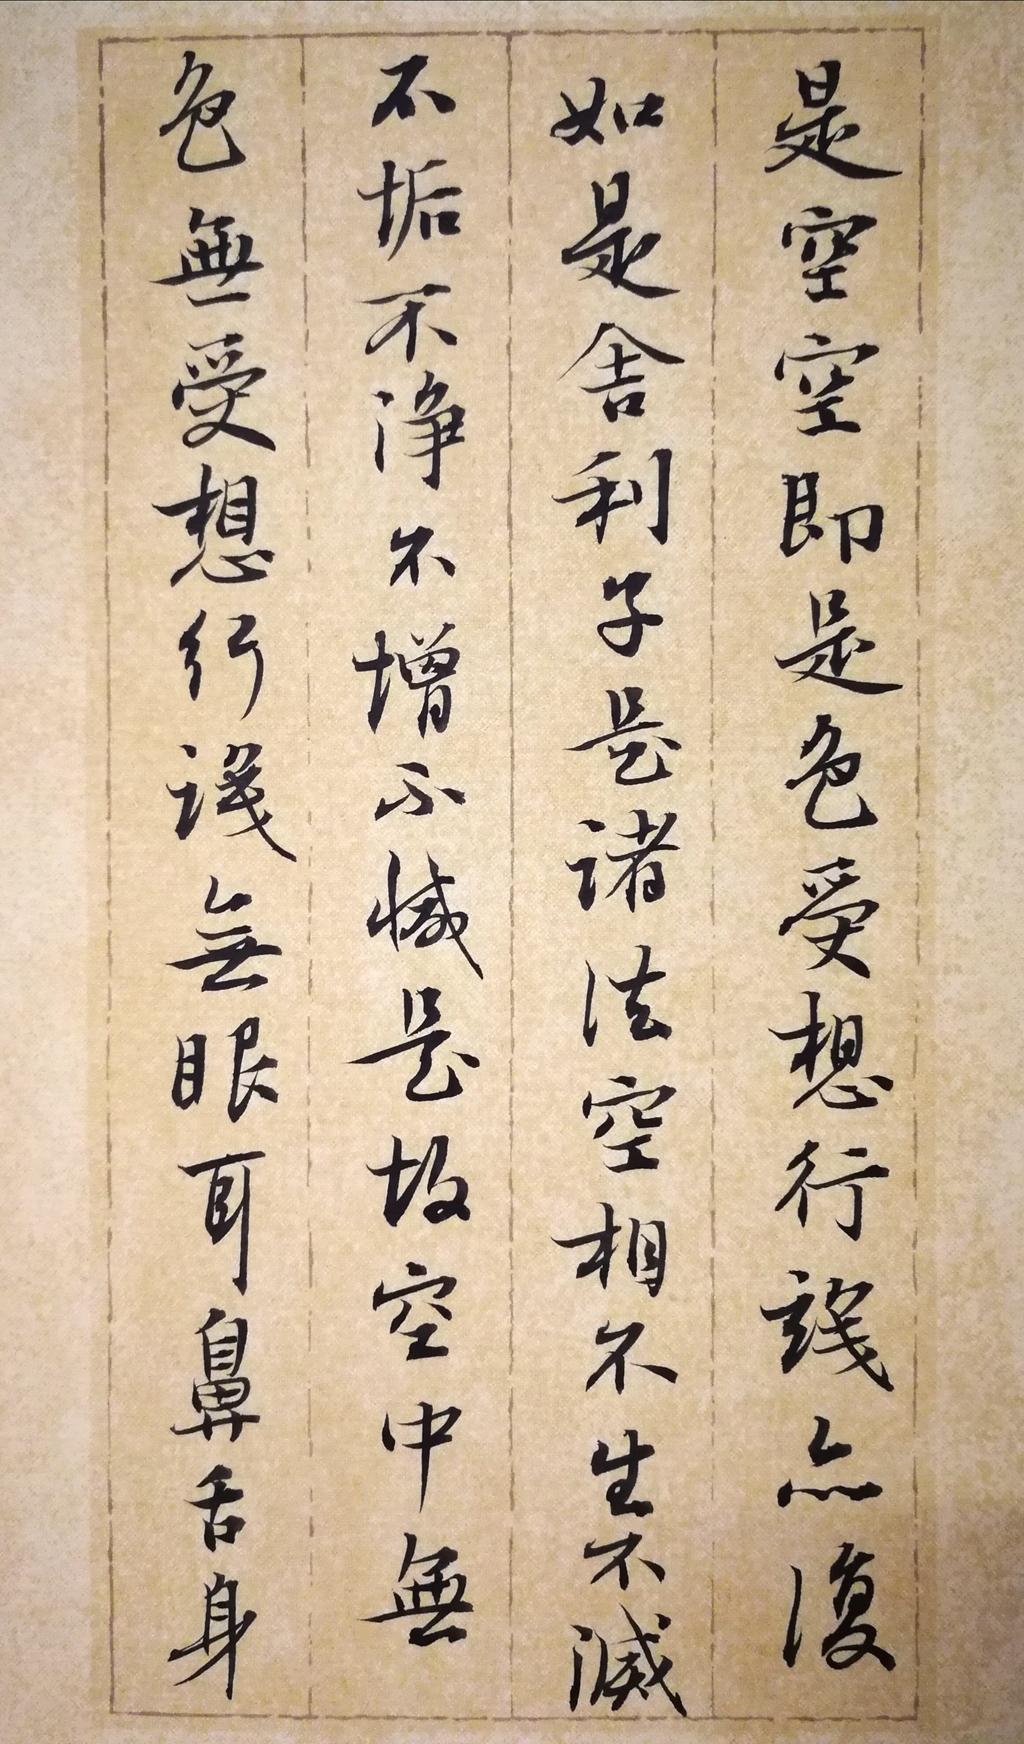 是空空即是色受想行識亦復
如是舍利子是諸法空相不生不滅
不垢不淨不增不減是故空中無
色無受想行識無眼耳鼻舌身